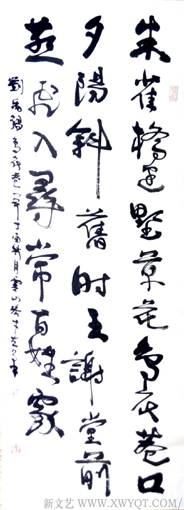 朱雀橋邊野草花烏衣巷口
夕陽斜舊時王謝堂前
燕飛入尋常百姓家
劉禹錫烏衣巷
新文艺/WWW.XWYQT.COM